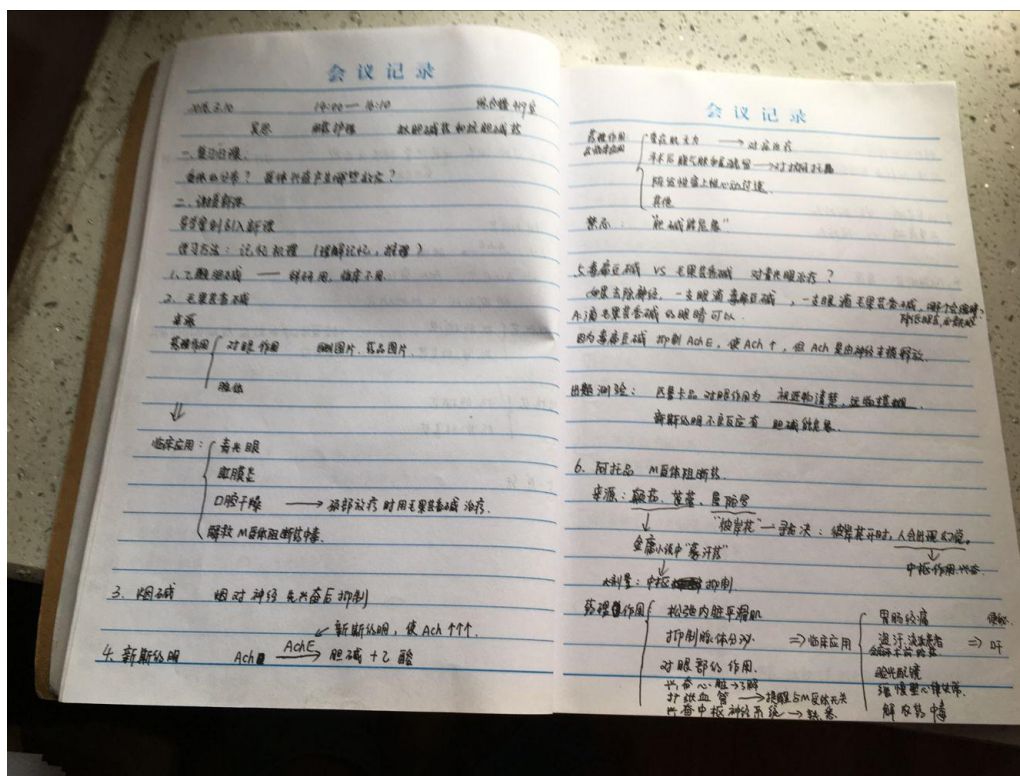 会议记录
14:00 — 14:10
拟胆碱药和抗胆碱药
一、复习旧课
受体的分布？ 受体兴奋产生哪些效应？
二、讲授新课
导学案例引入新课
学习方法：记忆规律 (理解记忆，推理)
1、乙酰胆碱 —— 科研用，临床不用
2、毛果芸香碱
来源
药理作用 对眼作用 图片、药品图片
腺体
⇓
临床应用： 青光眼
虹膜炎
口腔干燥 → 颈部放疗时用毛果芸香碱治疗.
解救M受体阻断药中毒.
3、烟碱 烟对神经先兴奋后抑制
↙ 新斯的明，使Ach↑↑↑.
4、新斯的明 Ach AchE → 胆碱+乙酸
会议记录
药理作用 重症肌无力 → 对症治疗
及临床应用 手术后腹气胀和尿潴留
阵发性室上性心动过速.
其他
禁忌：
5、毒扁豆碱 VS 毛果芸香碱 对青光眼治疗？
如果去除神经，一支眼滴毒扁豆碱，一支眼滴毛果芸香碱，哪个会缩瞳？
A:滴毛果芸香碱的眼睛可以. 降低眼压
因为毒扁豆碱抑制AchE，使Ach↑，但Ach是由神经末梢释放.
出题测验： 匹鲁卡品对眼作用为 视近物清楚，远物模糊.
新斯的明不良反应有 胆碱能危象.
6、阿托品 M受体阻断药
来源：颠茄、莨菪、曼陀罗
"彼岸花" — 寻秦 : 彼岸花开时，人会出现幻觉。
金庸小说中"蒙汗药" 中枢作用.兴奋
大剂量：中枢 抑制
药理作用 松弛内脏平滑肌 胃肠绞痛
抑制腺体分泌 ⇒临床应用 盗汗、流涎患者 ⇒
对眼部的作用. 验光配镜
兴奋心脏 缓慢型心律失常.
扩张血管 → 提醒与M受体无关 解农药中毒
兴奋中枢神经系统 →